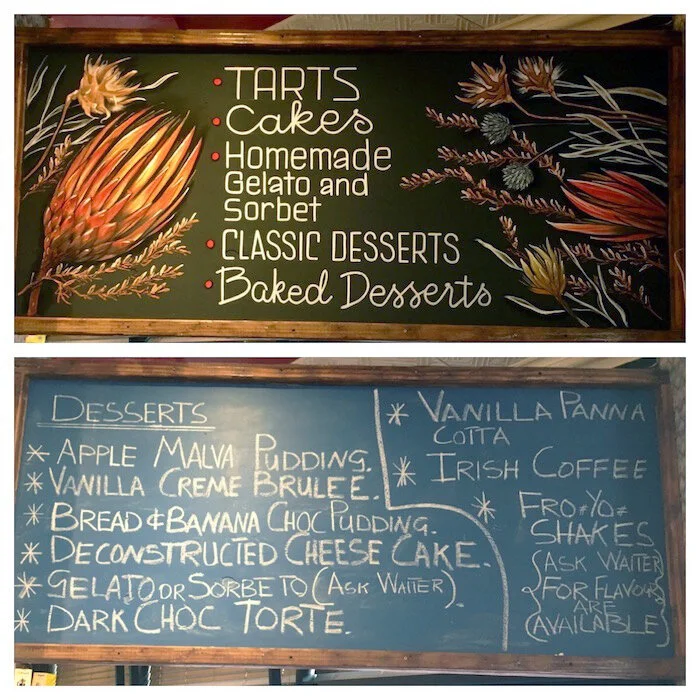 TARTS
Cakes
Homemade
Gelato and
Sorbet
CLASSIC DESSERTS
Baked Desserts
DESSERTS
* APPLE MALVA PUDDING.
* VANILLA CREME BRULEE.
* BREAD & BANANA CHOC PUDDING.
* DECONSTRUCTED CHEESE CAKE.
* GELATO OR SORBE TO (ASK WAITER)
* DARK CHOC TORTE.
* VANILLA PANNA
COTTA
* IRISH COFFEE
* FRO-YO-
SHAKES
(ASK WAITER
FOR FLAVOURS
ARE
AVAILABLE)